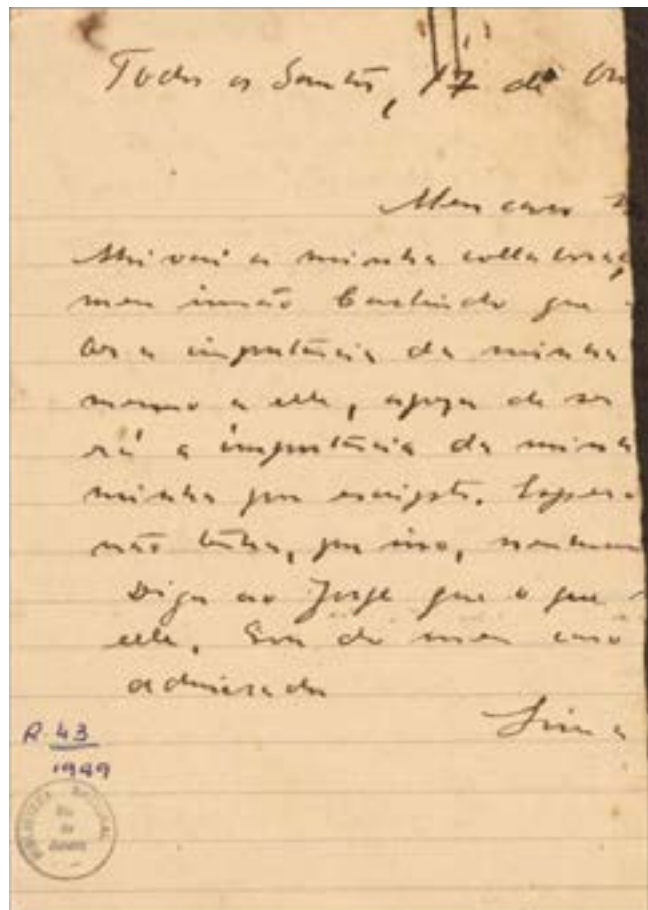 Todos os Santos, 17 de
Meu caro
Ahi vai a minha collaboraç
meu irmão Carlindo que
ber a importancia da minha
mesmo a elle, apezar de ser
rá a importancia da minha
minha por escripto. Espero
não tenha, por isso, nenhum
Diga ao Jorge que o que
elle. Sou do meu caro
admirador
Lima
R. 43
1949
BIBLIOTHECA NACIONAL
Rio
de
Janeiro